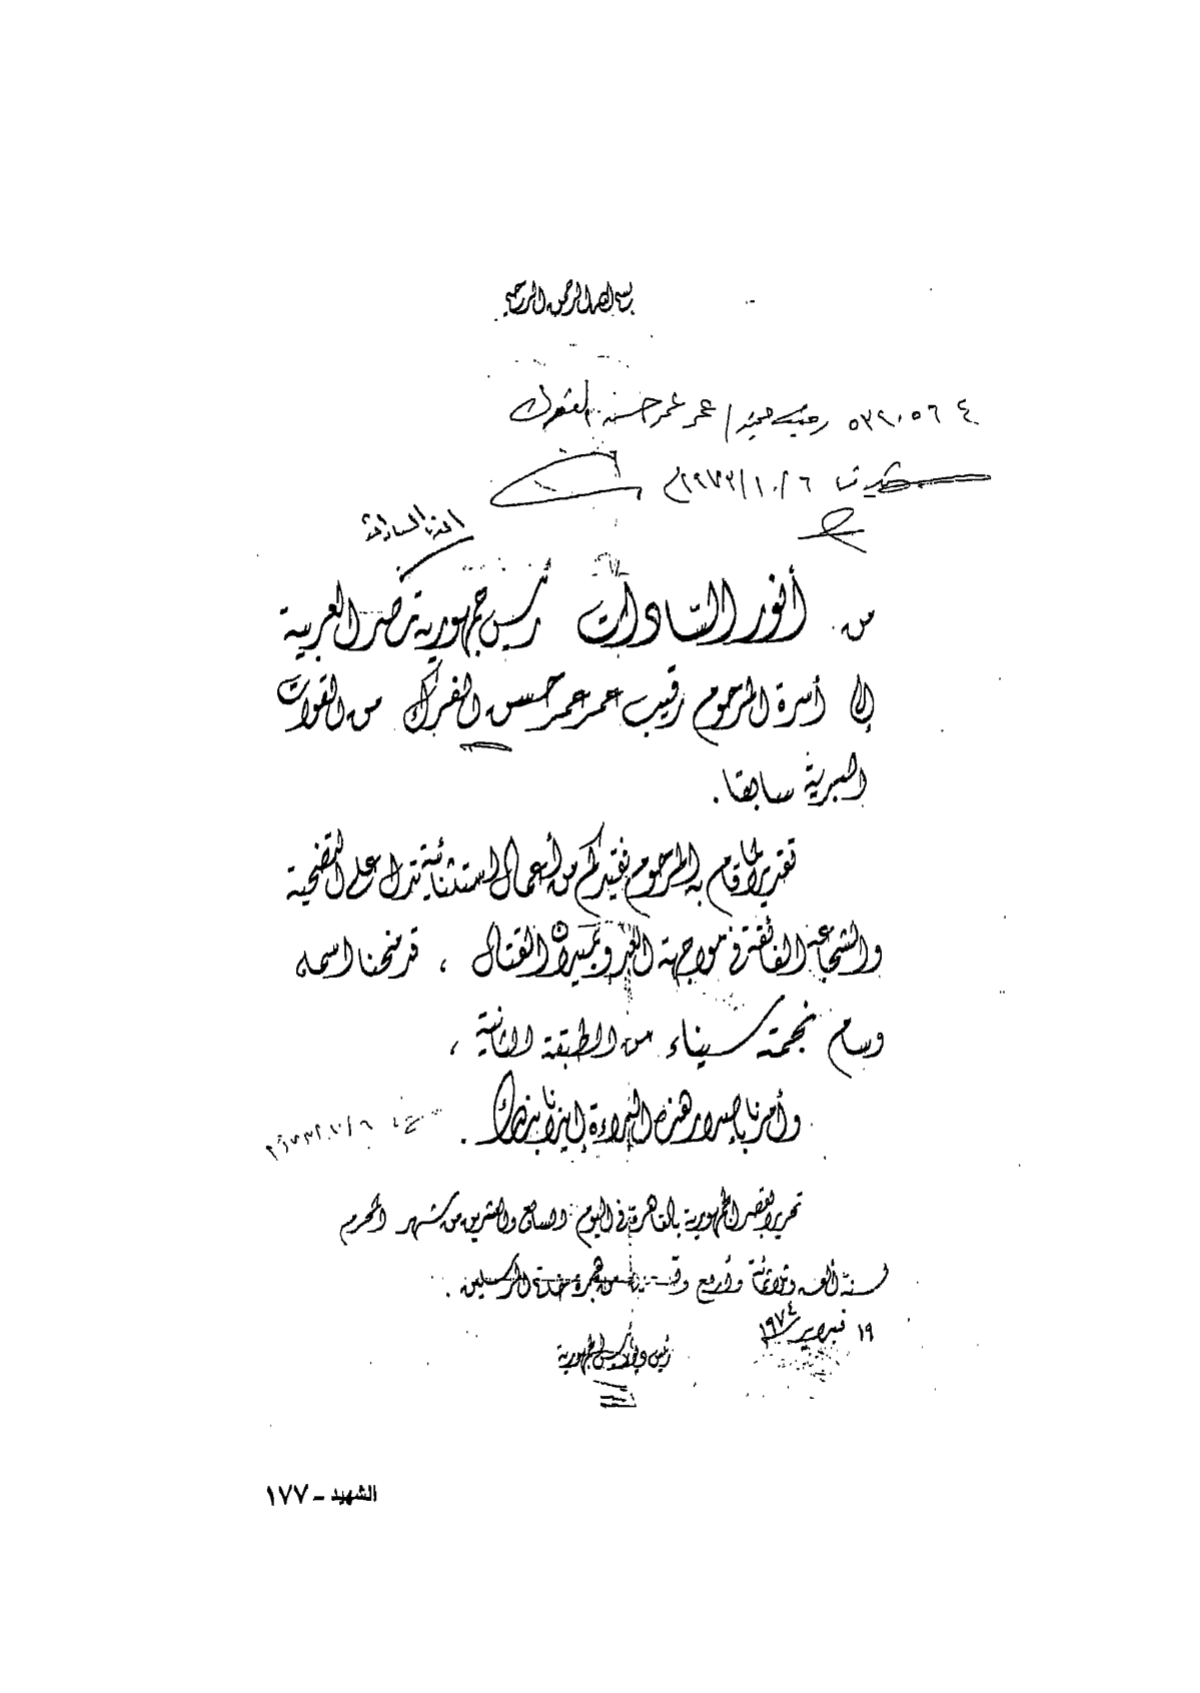 بسم الله الرحمن الرحيم
٥٣٩٠٥٦٤ رقيب مجند / عمر عمر حسن
٦/١٠/١٩٧٣م
أنور السادات
من أنور السادات رئيس جمهورية مصر العربية
إلى أسرة المرحوم رقيب عمر عمر حسن الفرك من القوات
البرية سابقا.
تقديرا لما قام به المرحوم فقيدكم من أعمال استثنائية تدل على التضحية
والشجاعة الفائقة فى مواجهة العدو بميدان القتال ، قد منحنا اسمه
وسام نجمة سيناء من الطبقة الثانية ،
وأمرنا بإصدار هذه البراءة إيذانا بذلك .
تحريرا بقصر الجمهورية بالقاهرة فى اليوم السابع والعشرين من شهر المحرم
لسنة ألف وثلاثمائة وأربع وتسعين من هجرة خاتم المرسلين .
١٩ فبراير ١٩٧٤
رئيس ديوان رئيس الجمهورية
الشهيد - ١٧٧